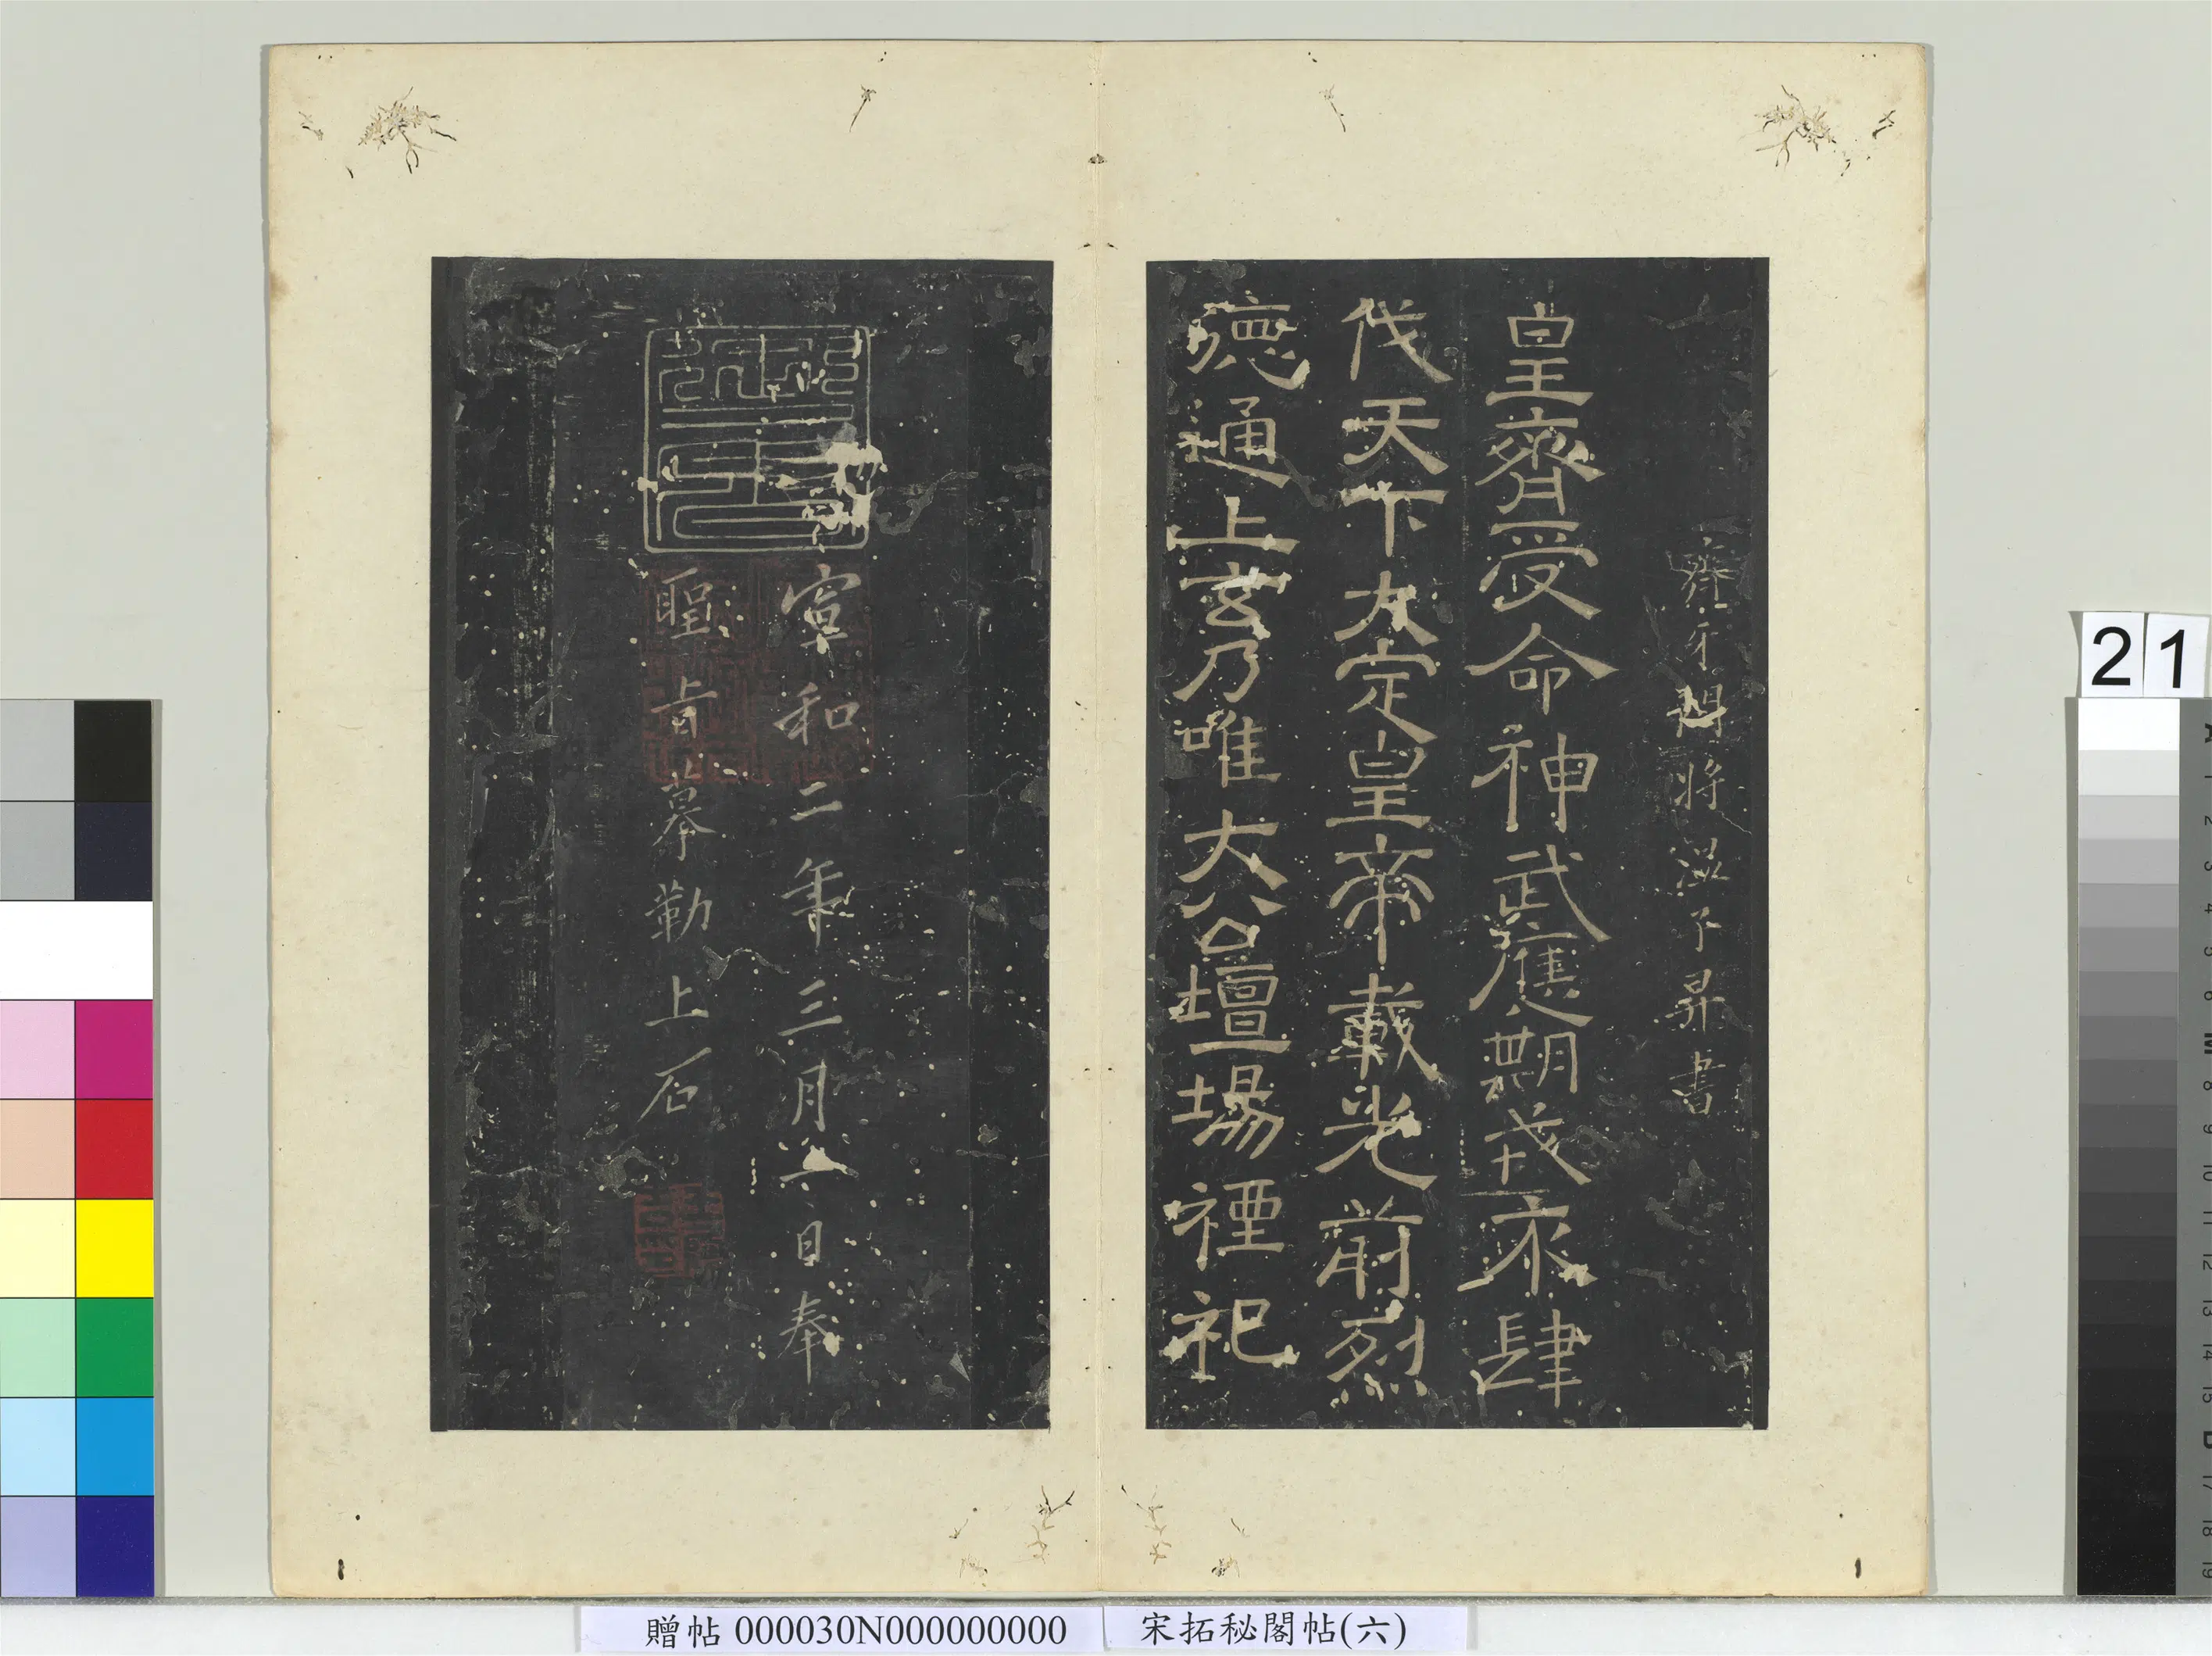 齊牙門將溫子昇書
皇齊受命神武應期戎衣肆
伐天下大定皇帝載光前烈
德通上玄乃唯大公壇場禋祀
宣和二年三月六日奉
聖旨摹勒上石
21
贈帖 000030N000000000
宋拓秘閣帖(六)